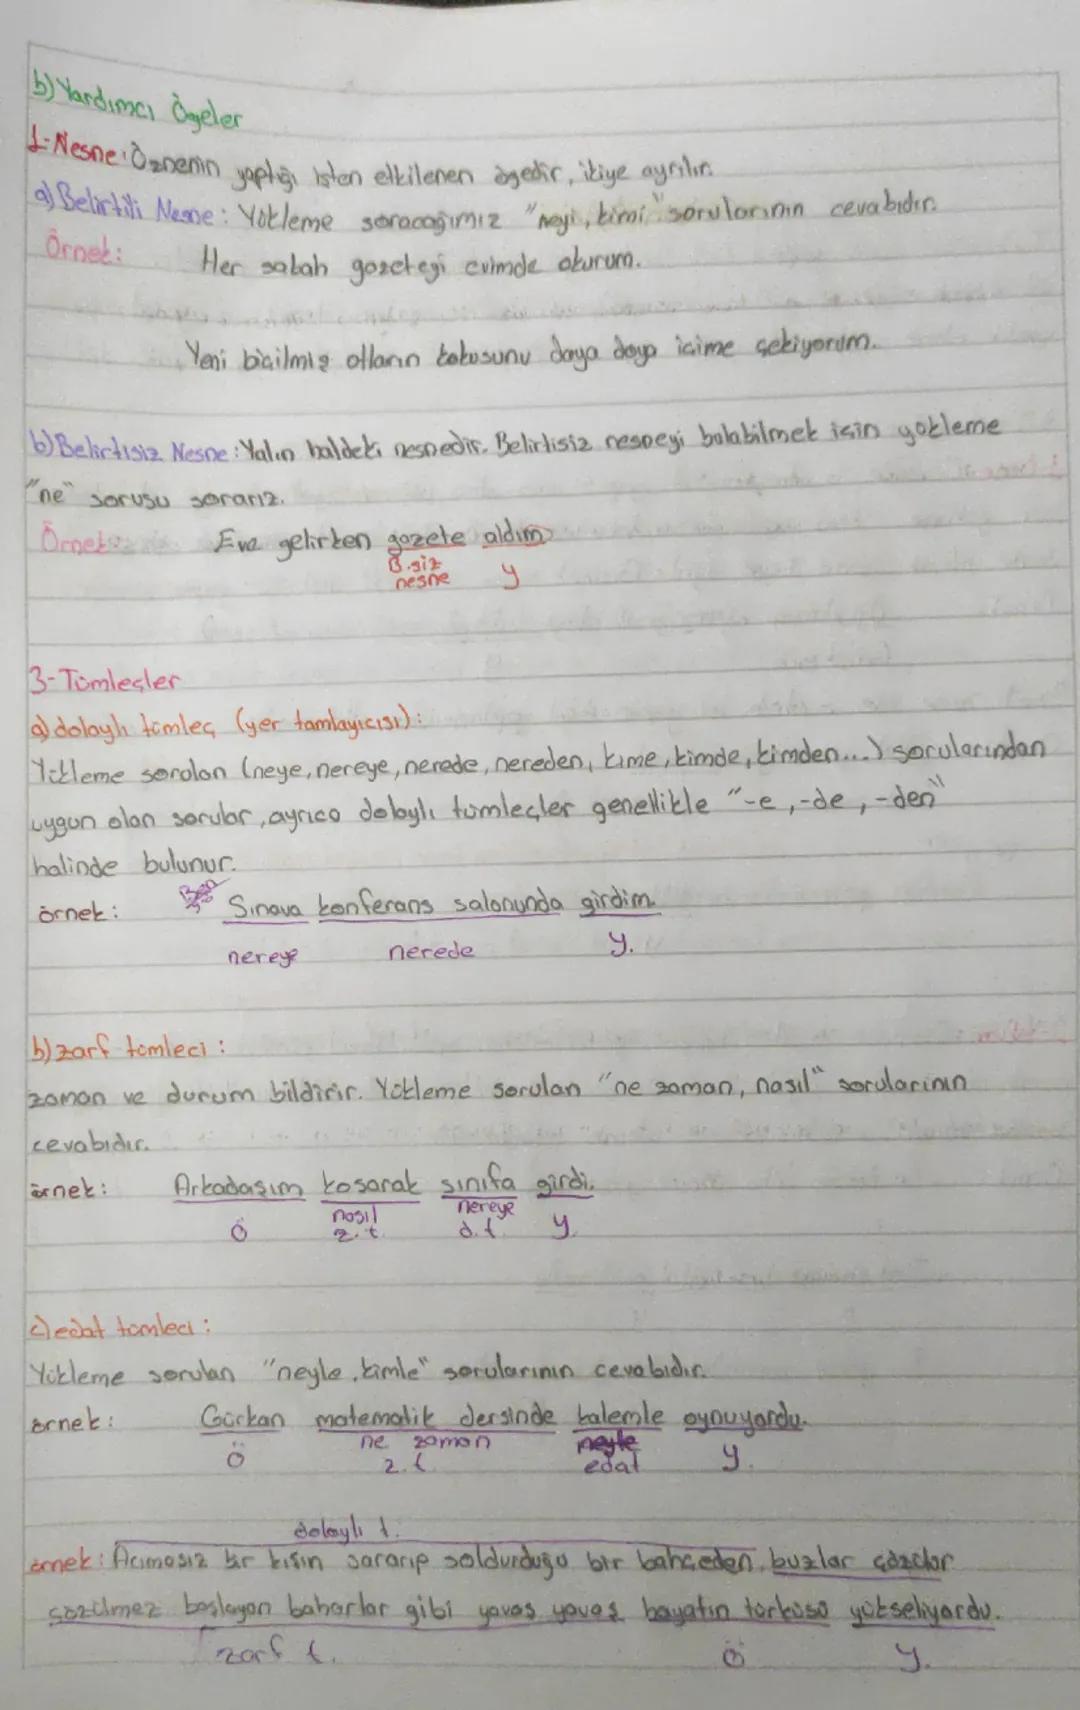 b) Yardımcı Ögeler
1-Nesne: Öznenin yaptığı işten etkilenen ögedir, ikiye ayrılır.
a) Belirtili Nesne: Yükleme soracağımız "neyi, kimi" sorularının cevabıdır.
Örnek: Her sabah gazeteyi evimde okurum.
Yeni biçilmiş otların kokusunu doya doya içime çekiyorum.
b) Belirtisiz Nesne: Yalın haldeki nesnedir. Belirtisiz nesneyi bulabilmek için yükleme
"ne" sorusu sorarız.
Örnek: Eve gelirken gazete aldım
B.siz nesne y
3-Tümleçler
a) dolaylı tümleç (yer tamlayıcısı):
Yükleme sorulan (neye, nereye, nerede, nereden, kime, kimde, kimden...) sorularından
uygun olan sorular, ayrıca dolaylı tümleçler genellikle "-e, -de, -den"
halinde bulunur.
örnek: Sınava konferans salonunda girdim.
nereye nerede y.
b) zarf tümleci:
zaman ve durum bildirir. Yükleme sorulan "ne zaman, nasıl" sorularının
cevabıdır.
örnek: Arkadaşım koşarak sınıfa girdi.
nasıl nereye
ö z.t. d.t. y.
c) edat tümleci:
Yükleme sorulan "neyle, kimle" sorularının cevabıdır.
örnek: Gürkan matematik dersinde kalemle oynuyordu.
ne zaman neyle
ö z.t. edat y.
dolaylı t.
örnek: Acımasız bir kışın sararıp soldurduğu bir bahçeden, buzlar çözülür
çözülmez başlayan baharlar gibi yavaş yavaş hayatın türküsü yükseliyordu.
zarf t. ö y.